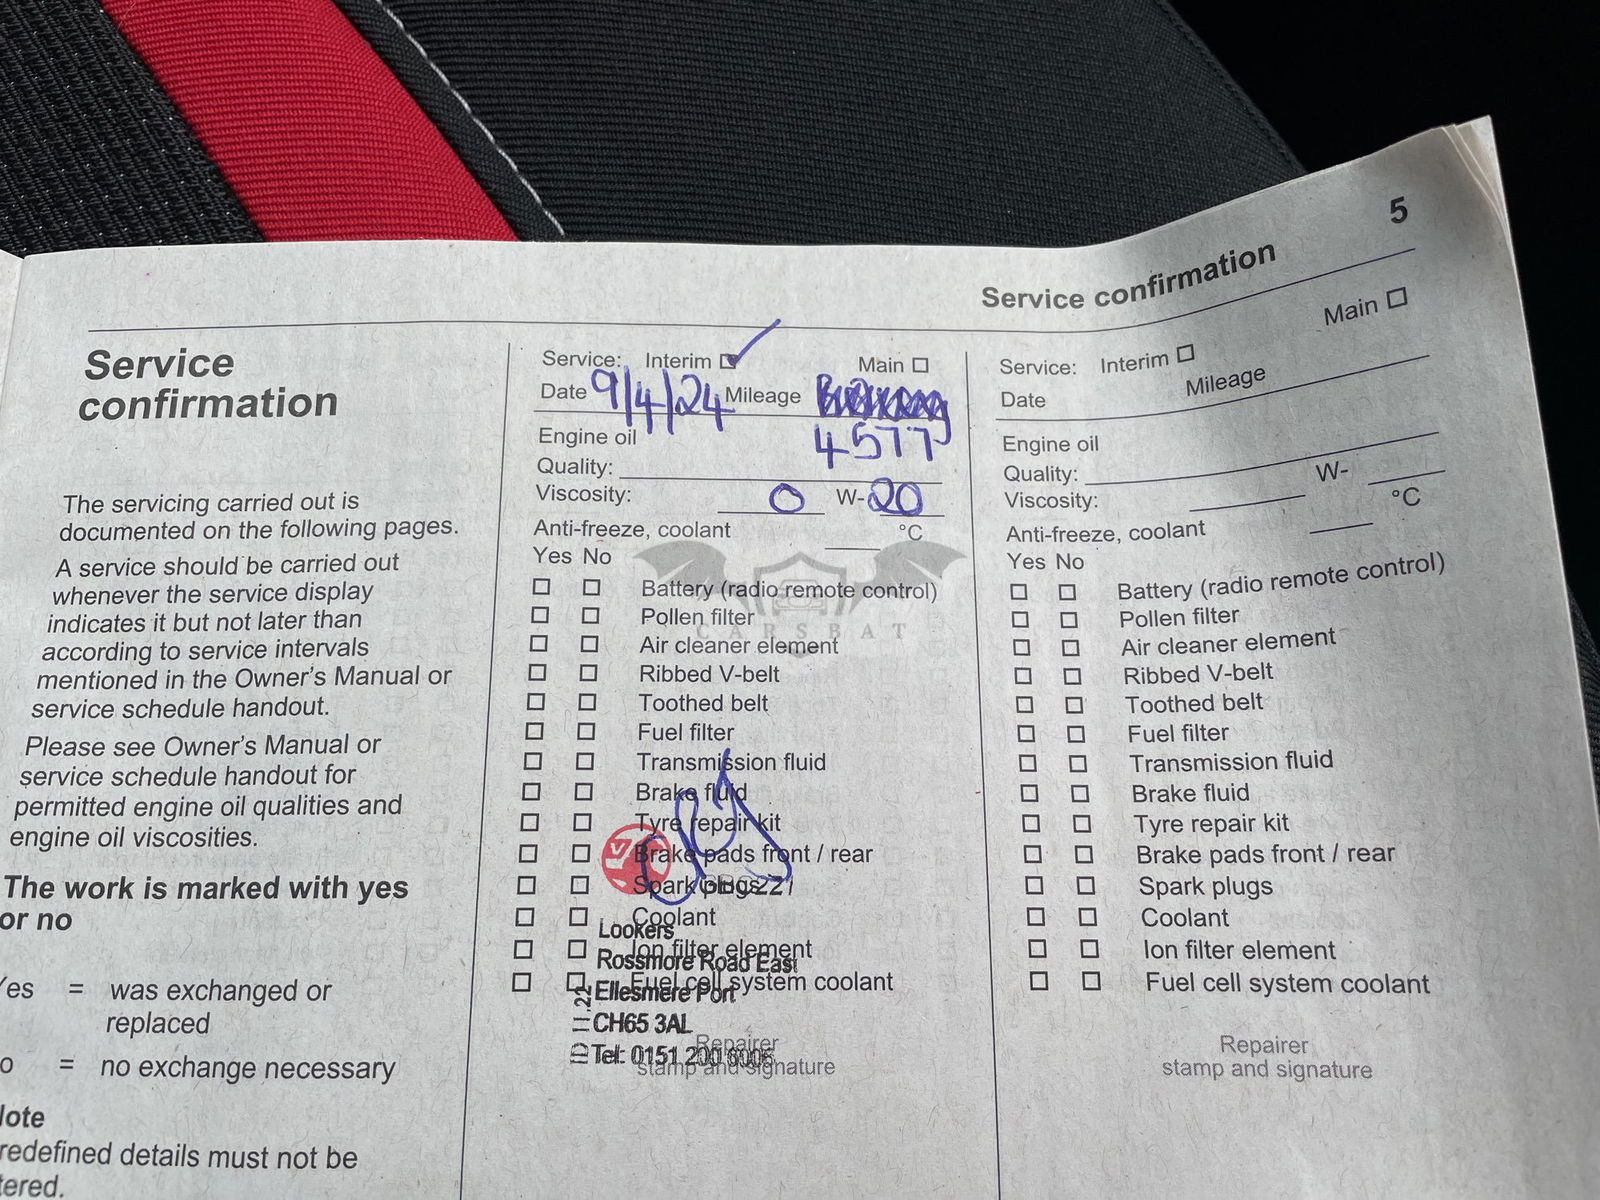 5
Service confirmation
Service
confirmation
The servicing carried out is
documented on the following pages.
A service should be carried out
whenever the service display
indicates it but not later than
according to service intervals
mentioned in the Owner's Manual or
service schedule handout.
Please see Owner's Manual or
service schedule handout for
permitted engine oil qualities and
engine oil viscosities.
The work is marked with yes
or no
Yes = was exchanged or
replaced
o = no exchange necessary
Note
redefined details must not be
tered.
Service: Interim Main
Date 9/4/24 Mileage
4577
Engine oil
Quality:
Viscosity: 0 W-20
Anti-freeze, coolant °C
Yes No
Battery (radio remote control)
Pollen filter
CARSBAT
Air cleaner element
Ribbed V-belt
Toothed belt
Fuel filter
Transmission fluid
Brake fluid
Tyre repair kit
Brake pads front / rear
Spark plugs
Coolant
Lookers
Ion filter element
Rossmore Road East
Fuel cell system coolant
Ellesmere Port
CH65 3AL
Repairer
Tel: 0151 200
stamp and signature
Service: Interim Main
Date Mileage
Engine oil
Quality:
Viscosity: W-
Anti-freeze, coolant °C
Yes No
Battery (radio remote control)
Pollen filter
Air cleaner element
Ribbed V-belt
Toothed belt
Fuel filter
Transmission fluid
Brake fluid
Tyre repair kit
Brake pads front / rear
Spark plugs
Coolant
Ion filter element
Fuel cell system coolant
Repairer
stamp and signature